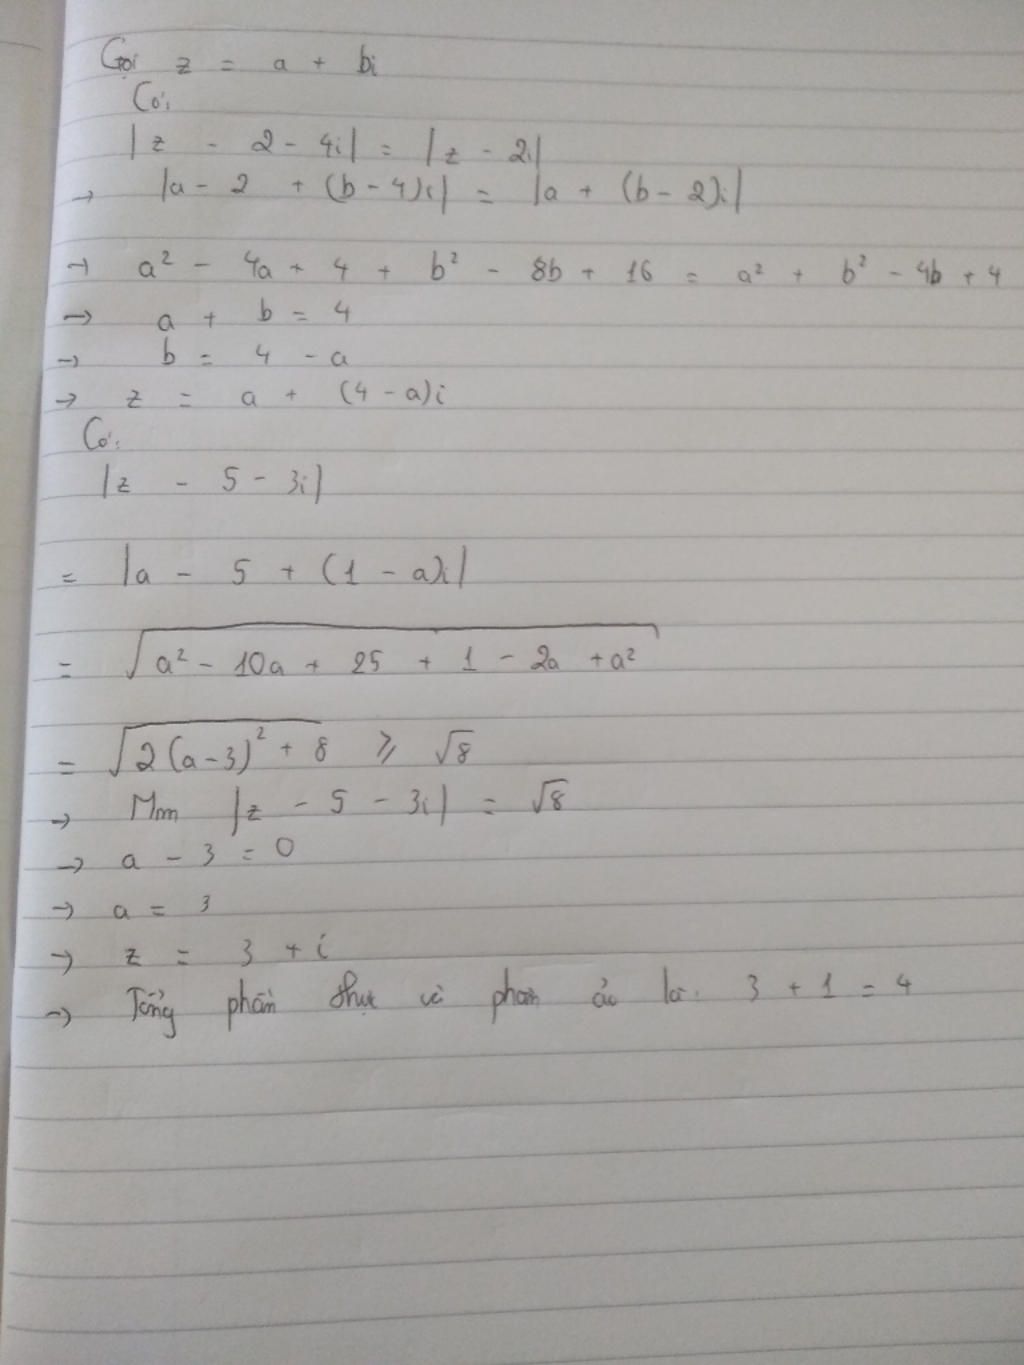 Gọi z = a + bi
Có:
|z - 2 - 4i| = |z - 2i|
→ |a - 2 + (b - 4)i| = |a + (b - 2)i|
→ a² - 4a + 4 + b² - 8b + 16 = a² + b² - 4b + 4
→ a + b = 4
→ b = 4 - a
→ z = a + (4 - a)i
Có:
|z - 5 - 3i|
= |a - 5 + (1 - a)i|
= √(a² - 10a + 25 + 1 - 2a + a²)
= √(2(a-3)² + 8) ≥ √8
→ Min |z - 5 - 3i| = √8
→ a - 3 = 0
→ a = 3
→ z = 3 + i
→ Tổng phần thực và phần ảo là: 3 + 1 = 4